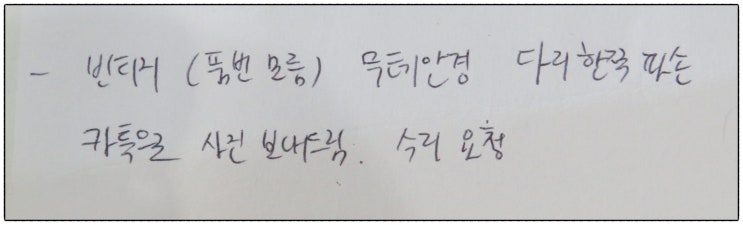 - 빈티지 (품번 모름) 무테안경 다리한쪽 파손
카톡으로 사진 보내드림. 수리 요청